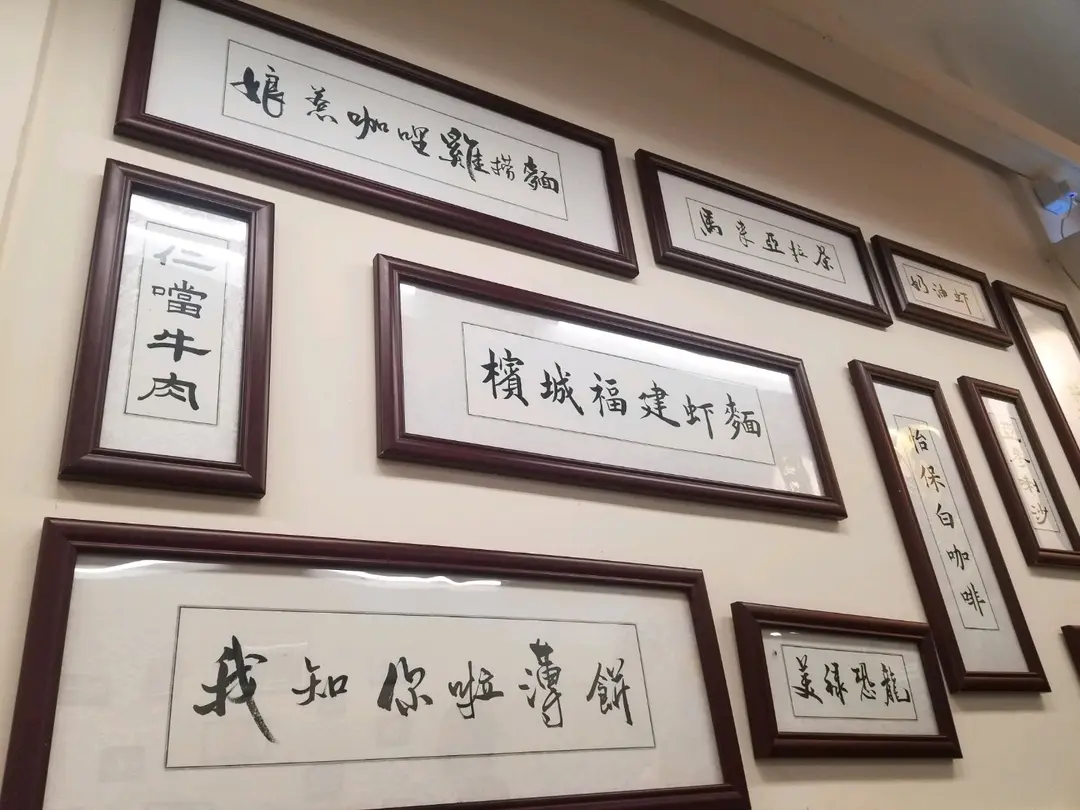 娘惹咖哩雞撈麵
馬來亞拉茶
奶油虾
仁噹牛肉
檳城福建虾麵
怡保白咖啡
喇沙
我知你啦薄餅
美祿恐龍